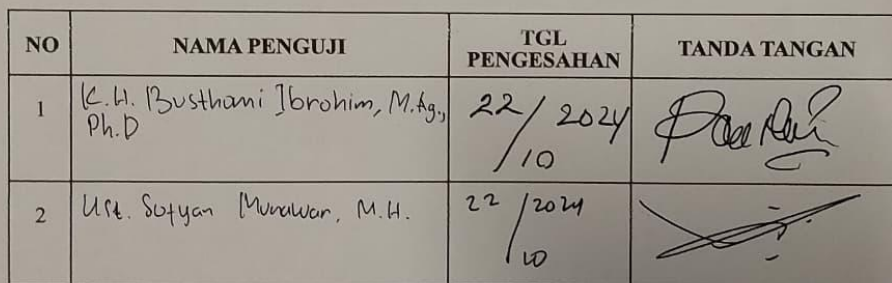 NO NAMA PENGUJI TGL PENGESAHAN TANDA TANGAN
1 K.H. Busthomi Ibrohim, M.Ag., Ph.D 22/10 2024
2 Ust. Sofyan Munawar, M.H. 22/10 2024